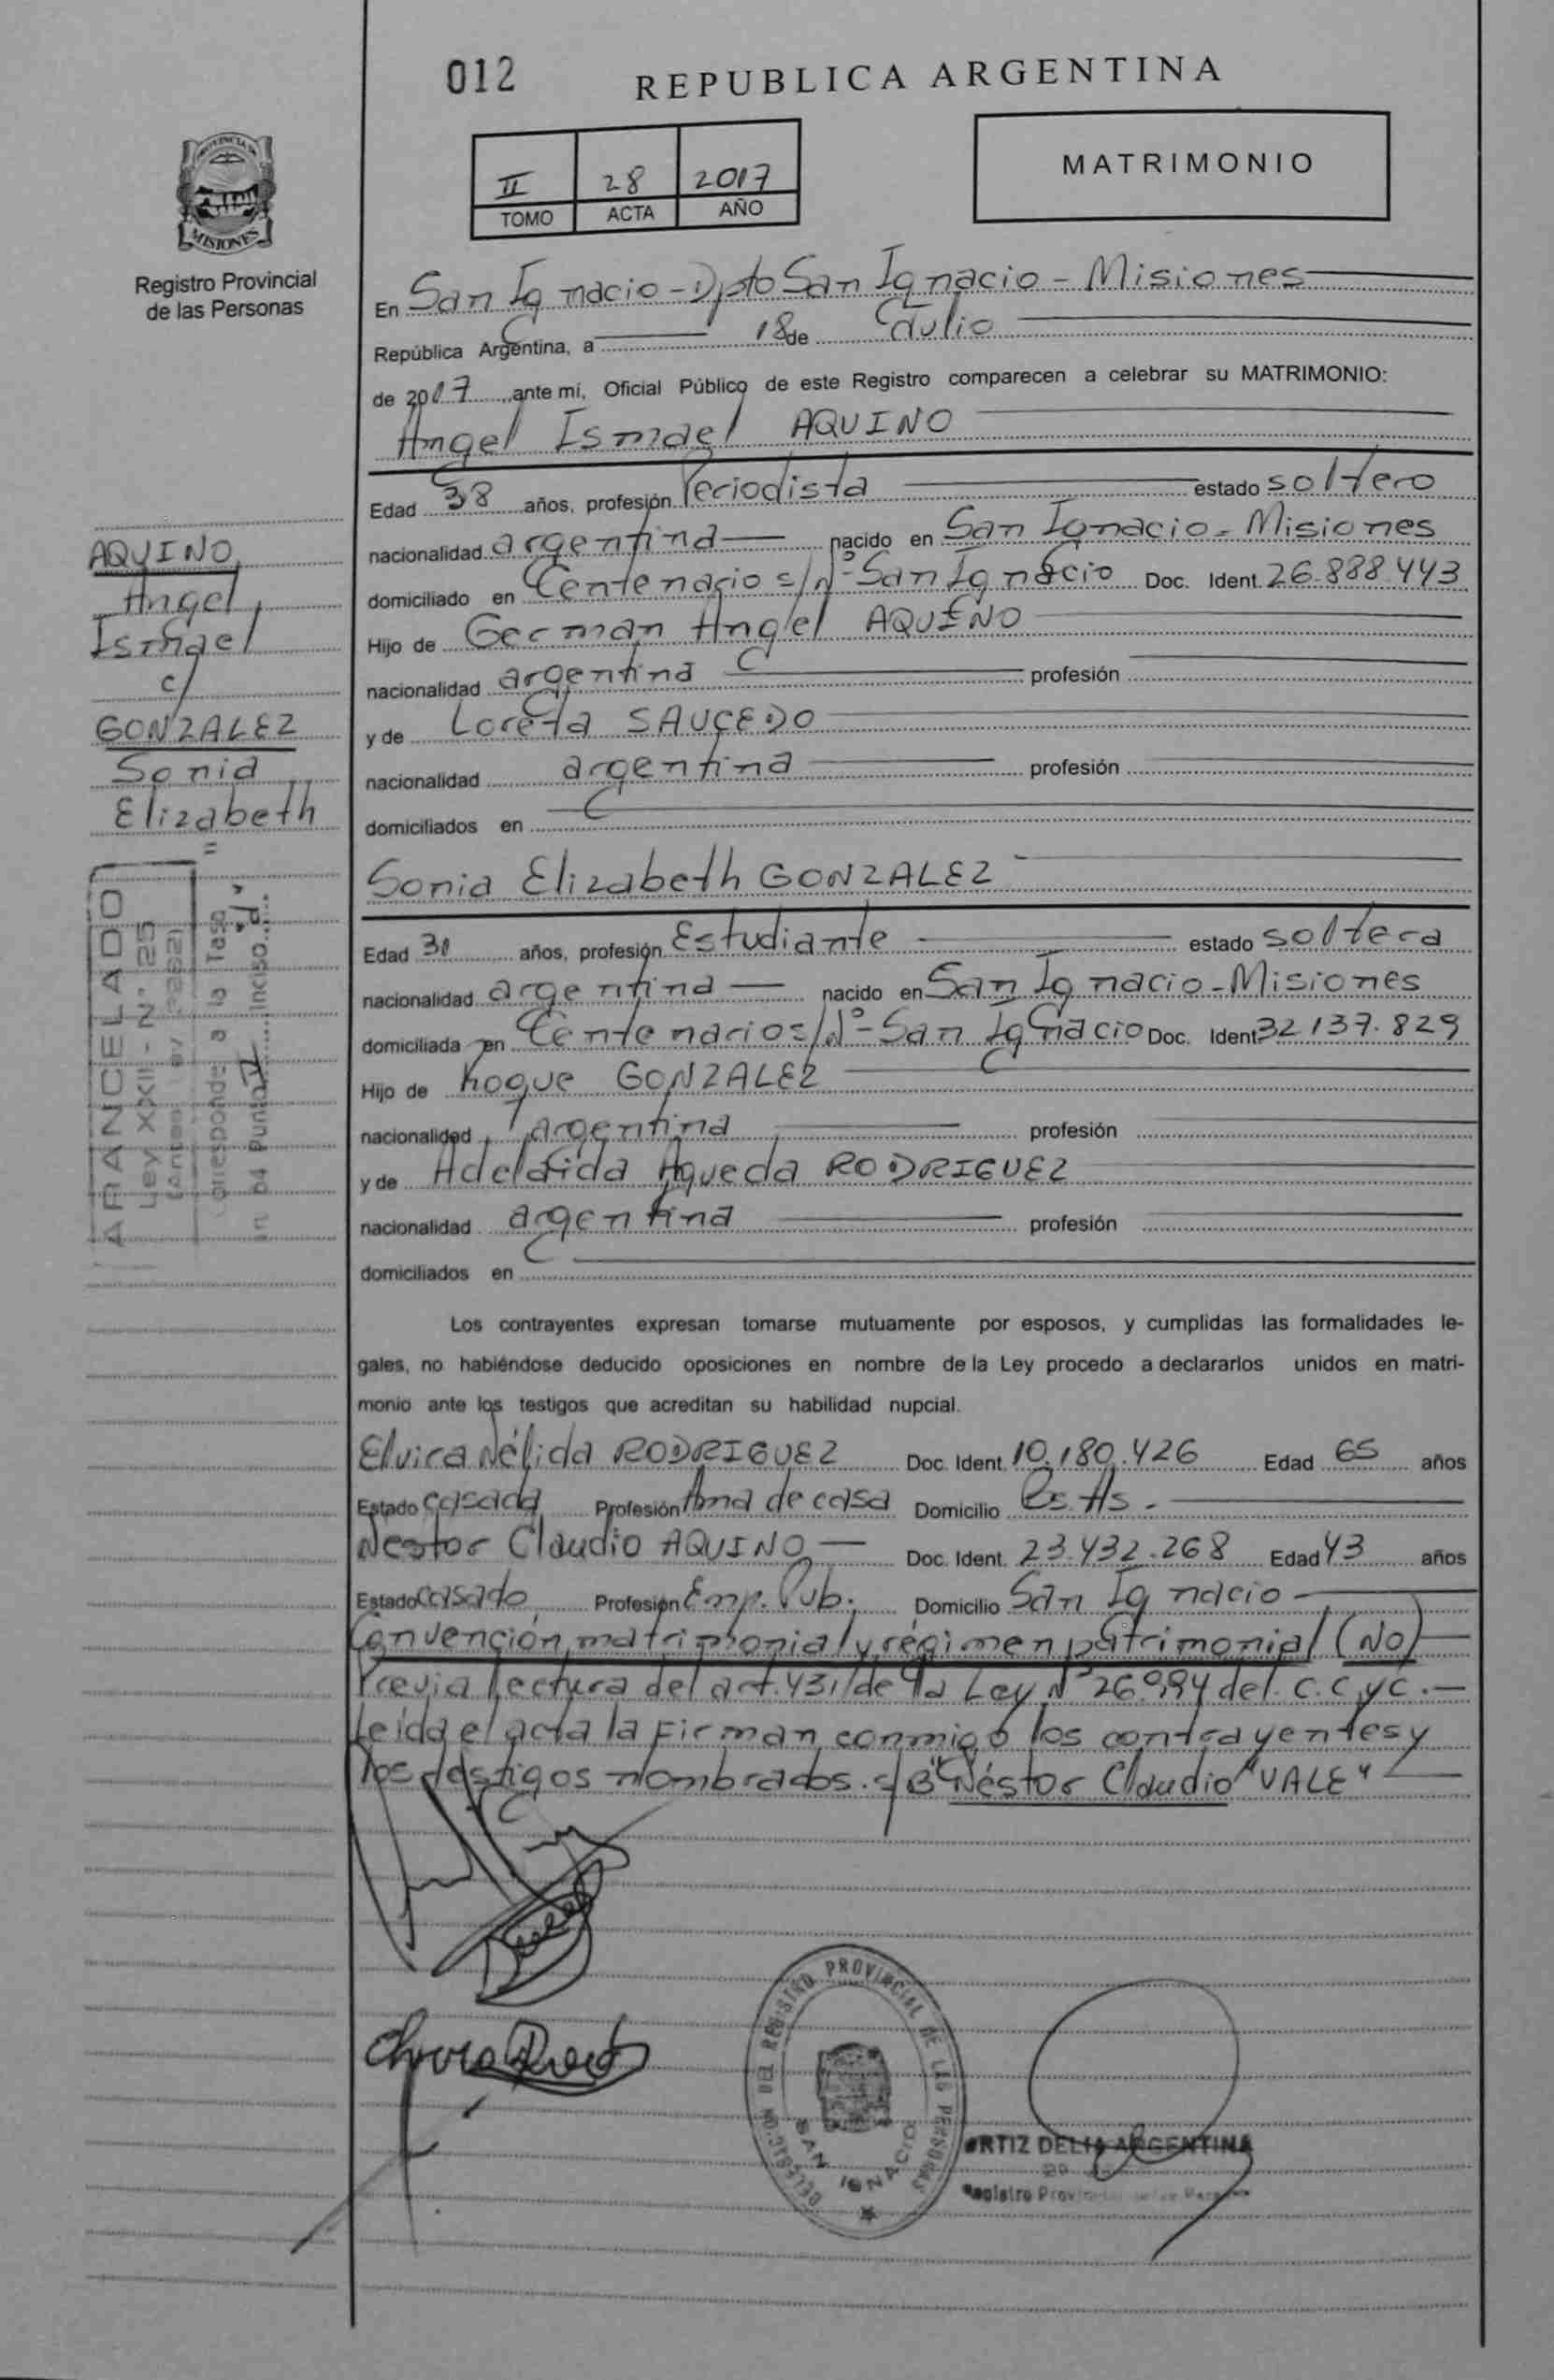 012
REPUBLICA ARGENTINA
PROVINCIA DE
MISIONES
Registro Provincial
de las Personas
II 28 2017
TOMO ACTA AÑO
MATRIMONIO
En San Ignacio - Dpto San Ignacio - Misiones
República Argentina, a 18 de Julio
de 2017 ante mí, Oficial Público de este Registro comparecen a celebrar su MATRIMONIO:
Angel Ismael AQUINO
Edad 38 años, profesión Periodista estado soltero
nacionalidad argentina nacido en San Ignacio - Misiones
domiciliado en Centenario s/Nº - San Ignacio Doc. Ident. 26.888.443
Hijo de German Angel AQUINO
nacionalidad argentina profesión
y de Loreta SAUCEDO
nacionalidad argentina profesión
domiciliados en
Sonia Elizabeth GONZALEZ
Edad 30 años, profesión Estudiante estado soltera
nacionalidad argentina nacido en San Ignacio - Misiones
domiciliada en Centenario s/Nº - San Ignacio Doc. Ident. 32.137.829
Hijo de Roque GONZALEZ
nacionalidad argentina profesión
y de Adelaida Agueda RODRIGUEZ
nacionalidad argentina profesión
domiciliados en
AQUINO
Angel
Ismael
c/
GONZALEZ
Sonia
Elizabeth
ARANCELADO
Ley XXII - Nº 25
Corresponde a la Tasa
Punto IV Inciso "d"
Los contrayentes expresan tomarse mutuamente por esposos, y cumplidas las formalidades le-
gales, no habiéndose deducido oposiciones en nombre de la Ley procedo a declararlos unidos en matri-
monio ante los testigos que acreditan su habilidad nupcial.
Elvira Nélida RODRIGUEZ Doc. Ident. 10.180.426 Edad 65 años
Estado casada Profesión Ama de casa Domicilio Bs. As. -
Nestor Claudio AQUINO - Doc. Ident. 23.432.268 Edad 43 años
Estado casado Profesión Emp. Pub. Domicilio San Ignacio -
Convención matrimonial y régimen patrimonial (NO)
Previa lectura del art. 431 de la Ley Nº 26.994 del C.C y C. -
Leída el acta la Firman conmigo los contrayentes y
los testigos nombrados. s/B "Néstor Claudio" "VALE"
DELEGAC. DEL REGISTRO PROVINCIAL DE LAS PERSONAS
SAN IGNACIO
ORTIZ DELIA ARGENTINA
Registro Provincial de las Personas